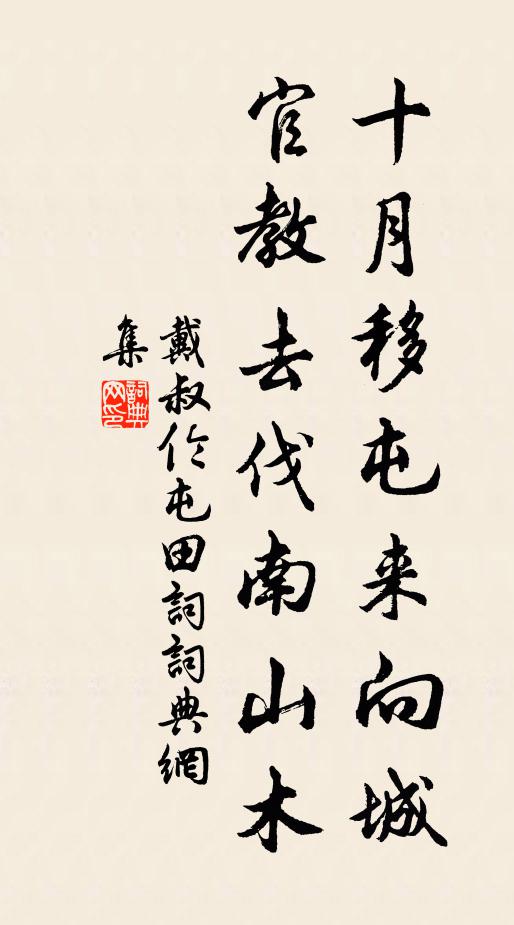 十月移屯来向城
官教去伐南山木
戴叔伦屯田詞詞典網
集
詞典網印